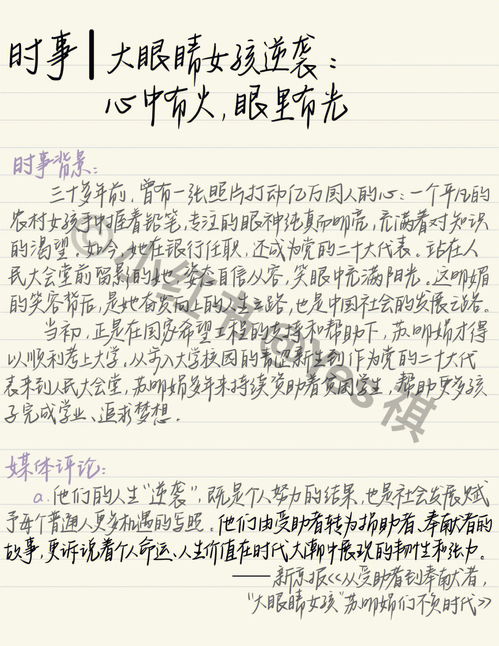 时事 | 大眼睛女孩逆袭：
心中有火，眼里有光
时事背景：
三十多年前，曾有一张照片打动亿万国人的心：一个平凡的
农村女孩手中握着铅笔，专注的眼神纯真而明亮，充满着对知识
的渴望。如今，她在银行任职，还成为党的二十大代表。站在人
民大会堂前留影的她，姿态自信从容，笑眼中充满阳光。这明媚
的笑容背后，是她奋发向上的人生之路，也是中国社会的发展之路。
当初，正是在国务希望工程的支持和帮助下，苏明娟才得
以顺利考上大学，从步入大学校园的青涩新生到作为党的二十大代
表来到人民大会堂，苏明娟多年来持续资助着贫困学生，帮助更多孩
子完成学业、追求梦想。
媒体评论：
a.他们的人生“逆袭”，既是个人努力的结果，也是社会发展赋
予每个普通人更多机遇的写照。他们由受助者转为捐助者、奉献者的
故事，更诉说着个人命运、人生价值在时代大潮中展现的韧性和张力。
——新京报《从受助者到奉献者，
“大眼睛女孩”苏明娟们不负时代》
@小红书@Yes祺